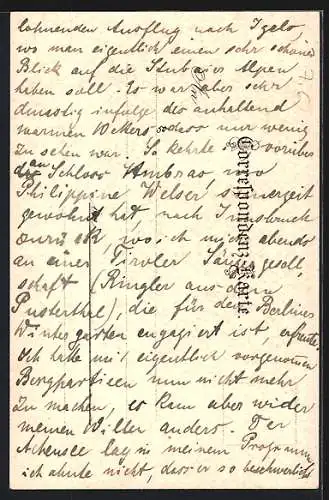 lohnenden Ausflug nach Igels,
wo man eigentlich einen sehr schönen
Blick auf die Stubaier Alpen
haben soll. Es war aber sehr
dunstig infolge des anhaltend
warmen Wetters sodass nur wenig
zu sehen war. So kehrte ich vorüber
an Schloss Ambras, wo
Philippine Welser seinerzeit
gewohnt hat, nach Innsbruck
zurück, wo ich mich abends
an einer Tiroler Sängergesell
schaft (Ringler aus dem
Pusterthal), die für den Berliner
Wintergarten engagiert ist erfreute.
Ich hatte mir eigentlich vorgenommen
Bergpartieen nun nicht mehr
zu machen, es kam aber wider
meinen Willen anders. Der
Achensee lag in meinem Programm
ich ahnte nicht, dass er so beschwerlich
Correspondenz-Karte